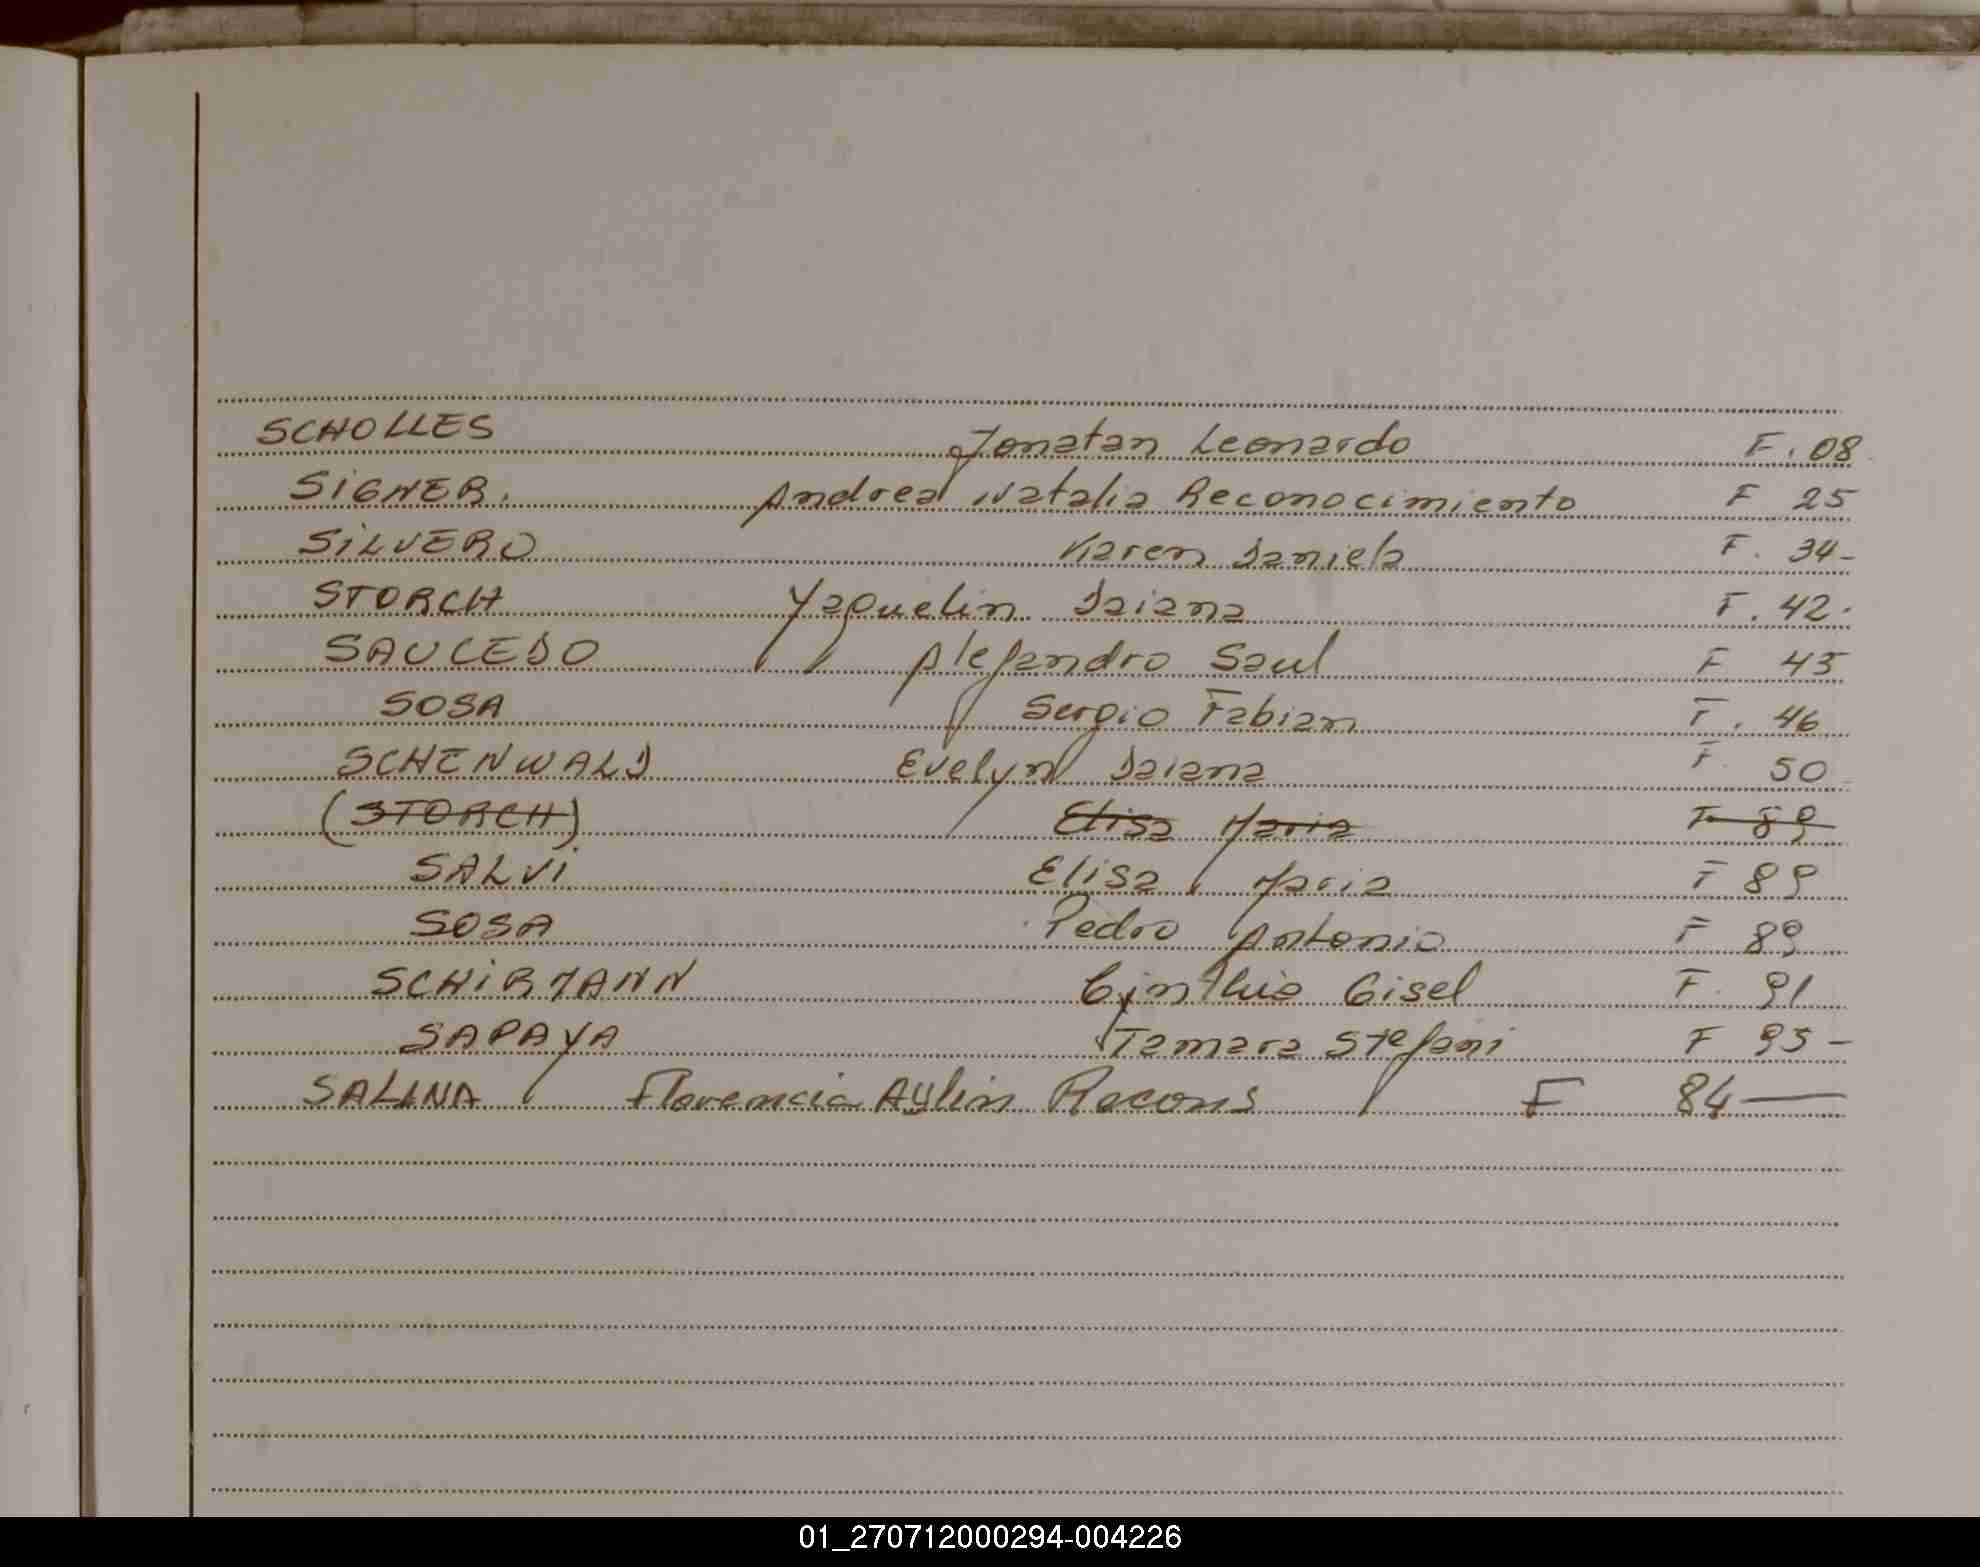 SCHOLLES Jonatan Leonardo F. 08
SIGNER. Andrea Natalia Reconocimiento F 25
SILVERO Karen Daniela F. 34-
STORCH Yaquelin Daiana F. 42.
SAUCEDO Alejandro Saul F 45
SOSA Sergio Fabian F. 46
SCHENWALD Evelyn Daiana F. 50
(STORCH) Elisa Maria F 89
SALVI Elisa Maria F 89
SOSA Pedro Antonio F 89
SCHIRMANN Cinthia Gisel F. 91
SAPAYA Tamara Stefani F 95-
SALINA Florencia Aylin Recons F 84—
01_270712000294-004226